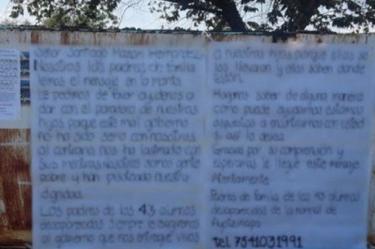 Señor Santiago Mazari Hernandez
Nosotros los padres de familia
vimos el mensaje en la manta
le pedimos de favor ayudenos a
dar con el paradero de nuestros
hijos porque este mal gobierno
no ha sido serio con nosotros
al contrario nos ha lastimado con
sus mentiras nosotros somos gente
pobre y han pisoteado nuestra
dignidad.
Los padres de los 43 alumnos
desaparecidos siempre le exigiremos
al gobierno que nos entregue vivos
a nuestros hijos porque ellos se
los llevaron y ellos saben donde
están.
saber de alguna manera
como puede ayudarnos estamos
dispuestos a reunirnos con usted
si así lo desea.
Gracias por su comprensión y
esperamos le llegue este mensaje
Atentamente
Padres de familia de los 43 alumnos
desaparecidos de la normal de
Ayotzinapa
Tel. 7541031991